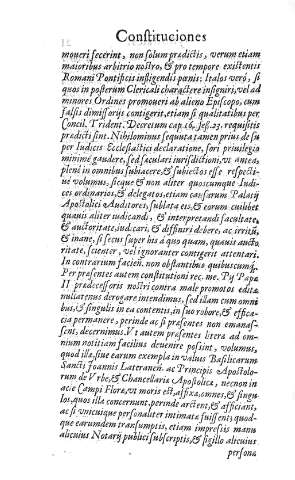 Constituciones
moueri fecerint, non solum predictis, verum etiam
maioribus arbitrio nostro, & pro tempore existentis
Romani Pontificis infligendis pœnis: Italos verò, si
quos in posterum Clericali charactere insigniri, vel ad
minores Ordines promoueri ab alieno Episcopo, cum
falsis dimissorijs contigerit, etiam si qualitatibus per
Concil. Trident. Decretum cap. 16. Sess. 23. requisitis
prædicti sint. Nihilominus sequuta tamen prius desu-
per Iudicis Ecclesiastici declaratione, fori priuilegio
minimè gaudere, sed sæculari iurisdictioni, vt antea,
pleni in omnibus subiacere, & subiectos esse respecti-
uè volumus, sicque & non aliter quoscumque Iudi-
ces ordinarios, & delegatos, etiam causarum Palatij
Apostolici Auditores, sublata eis, & eorum cuilibet
quauis aliter iudicandi, & interpretandi facultate,
& auctoritate, iudicari, & diffiniri debere, ac irritũ,
& inane, si secus super his à quoquam, quauis aucto
ritate, scienter, vel ignoranter contigerit attentari.
In contrarium facien. non obstantibus quibuscunq;
Per præsentes autem constitutioni rec. me. Pij Papæ
II prædecessoris nostri contra male promotos editæ
nullatenus derogare intendimus, sed illam cum omni
bus, & singulis in ea contentis, in suo robore, & effica-
cia permanere, perinde ac si præsentes non emanas-
sent, decernimus. Vt autem præsentes literæ ad om-
nium notitiam facilius deuenire possint, volumus,
quod illæ, siue earum exempla in valuis Basilicarum
Sancti Ioannis Lateranen. ac Principis Apostolo-
rum de Vrbe, & Chancellaria Apostolica, necnon in
acie Campi Floræ, vt moris est, affixæ, omnes, & singu-
los, quos illa concernunt, perinde arctent, & afficiant,
ac si vnicuique personaliter intimatæ fuissent; quod-
que earumdem transumptis, etiam impressis manu
alicuius Notarij publici subscriptis, & sigillo alicuius
persona